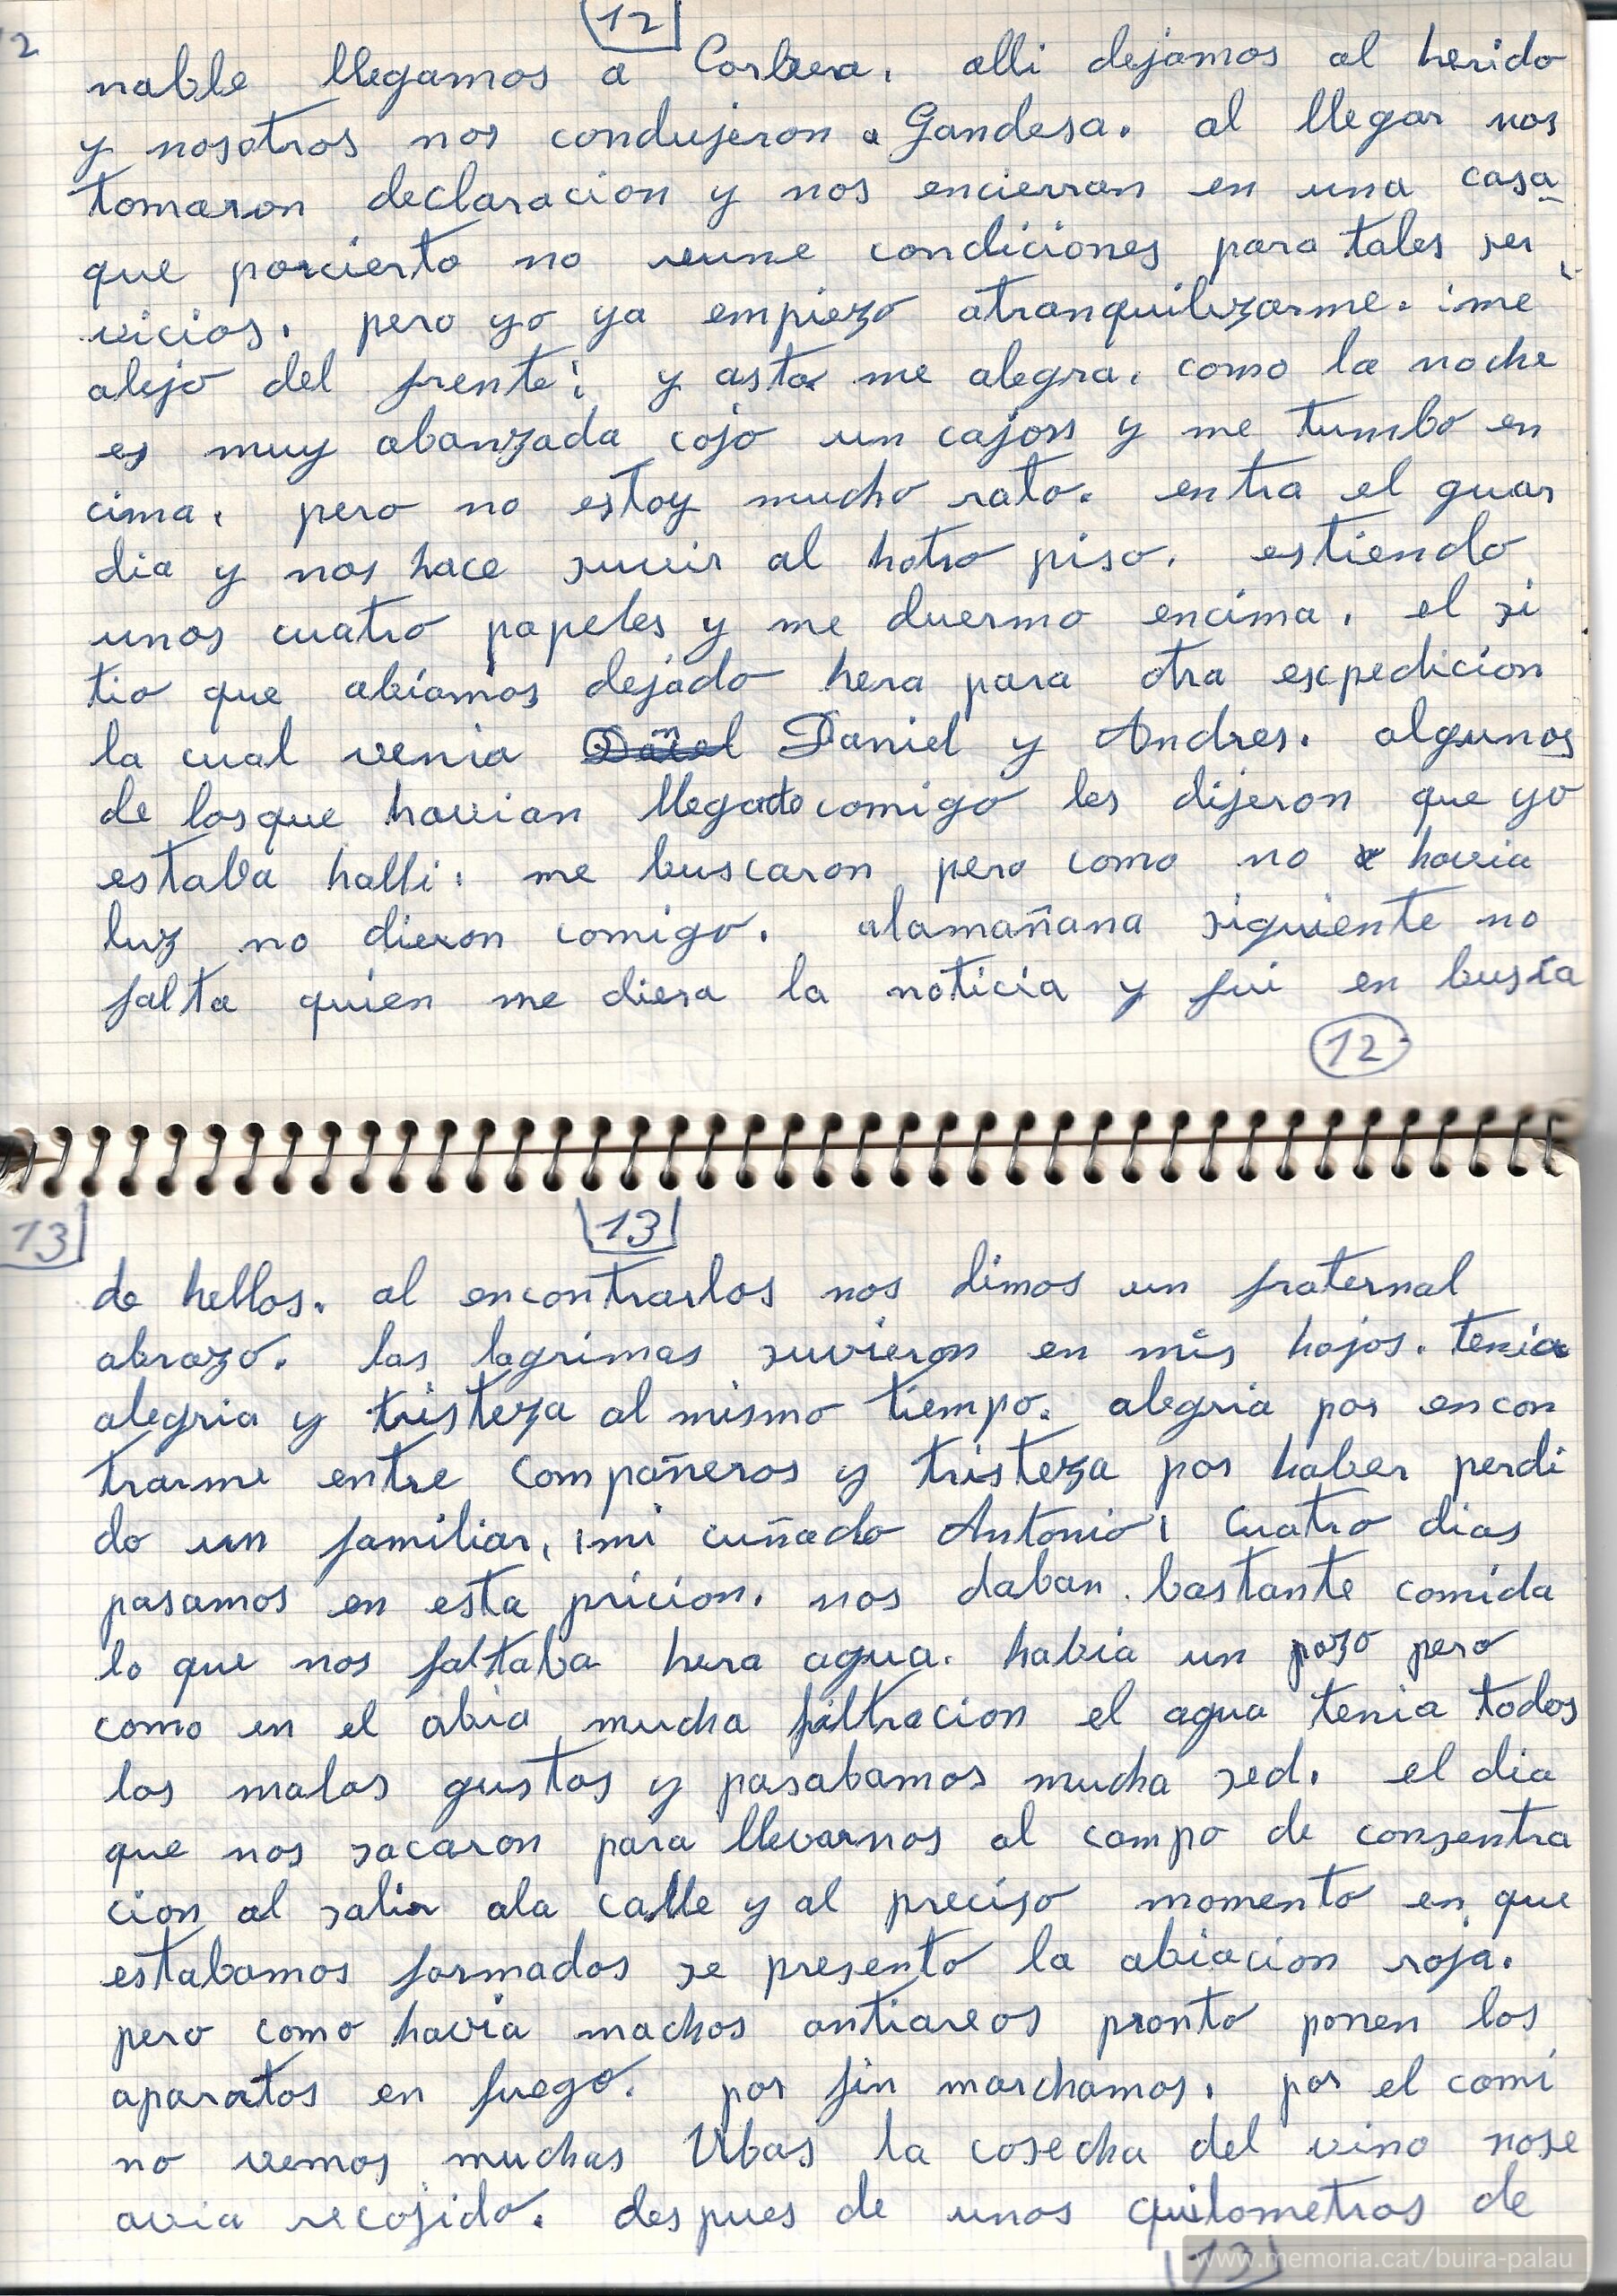 12
2
nable llegamos a Corbera. alli dejamos al herido
y nosotros nos condujeron a Gandesa. al llegar nos
tomaron declaracion y nos encierran en una casa
que porcierto no reune condiciones para tales ser
vicios. pero yo ya empiezo atranquilizarme. ¡me
alejo del frente¡ y asta me alegra. como la noche
es muy abanzada cojo un cajon y me tumbo en
cima. pero no estoy mucho rato. entra el guar
dia y nos hace suvir al hotro piso. estiendo
unos cuatro papeles y me duermo encima. el si
tio que abiamos dejado hera para otra expedicion
la cual venia Daniel y Andres. algunos
de losque havian llegado comigo les dijeron que yo
estaba halli. me buscaron pero como no havia
luz no dieron comigo. alamañana siguiente no
falta quien me diera la noticia y fui en busca
12
13
13
de hellos. al encontrarlos nos dimos un fraternal
abrazo. las lagrimas suvieron en mis hojos. tenia
alegria y tristeza al mismo tiempo. alegria por encon
trarme entre compañeros y tristeza por haber perdi
do un familiar, ¡mi cuñado Antonio¡ cuatro dias
pasamos en esta pricion. nos daban bastante comida
lo que nos faltaba hera agua. habia un pozo pero
como en el abia mucha filtracion el agua tenia todos
los malos gustos y pasabamos mucha sed. el dia
que nos sacaron para llevarnos al campo de consentra
cion al salir ala calle y al preciso momento en que
estabamos formados se presento la abiacion roja.
pero como havia machos antiareos pronto ponen los
aparatos en fuego. por fin marchamos. por el cami
no vemos muchas Ubas la cosecha del vino nose
avia recojido. despues de unos quilometros de
13
www.memoria.cat/buira-palau